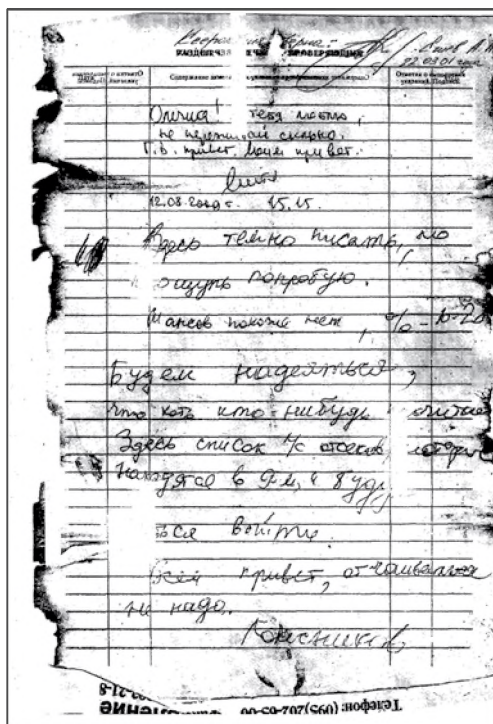 Олечка! тебя люблю,
не переживай сильно.
Г.В. привет. Моим привет.
12.08.2000г. 15.15.
Здесь темно писать, но
ощупь попробую.
Шансов похоже нет, % - 10-20
Будем надеяться,
что хоть кто-нибудь
Здесь список л/с отсеков,
находятся в 9-м и буд
ся выйти.
Всем привет, отчаиваться
не надо.
Колесников
Телефон: (095)202-65-00